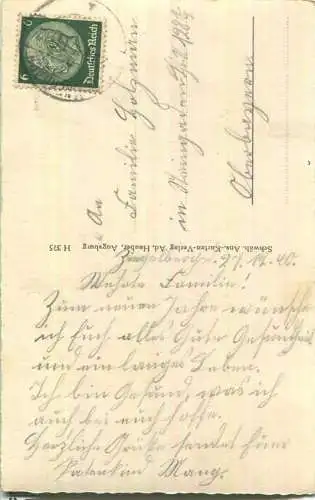 6
Deutsches Reich
6
An
Familie Holzmann
in
Oberbayern
Schwäb. Ans.-Karten-Verlag Ad. Hauber, Augsburg
H 375
12. 40.
Werte Familie!
Zum neuen Jahre wünsche
ich Euch alles Gute Gesundheit
und ein langes Leben.
Ich bin Gesund, was ich
auch bei euch hoffe.
Herzliche Grüße sendet Euer
Patenkind Mang.